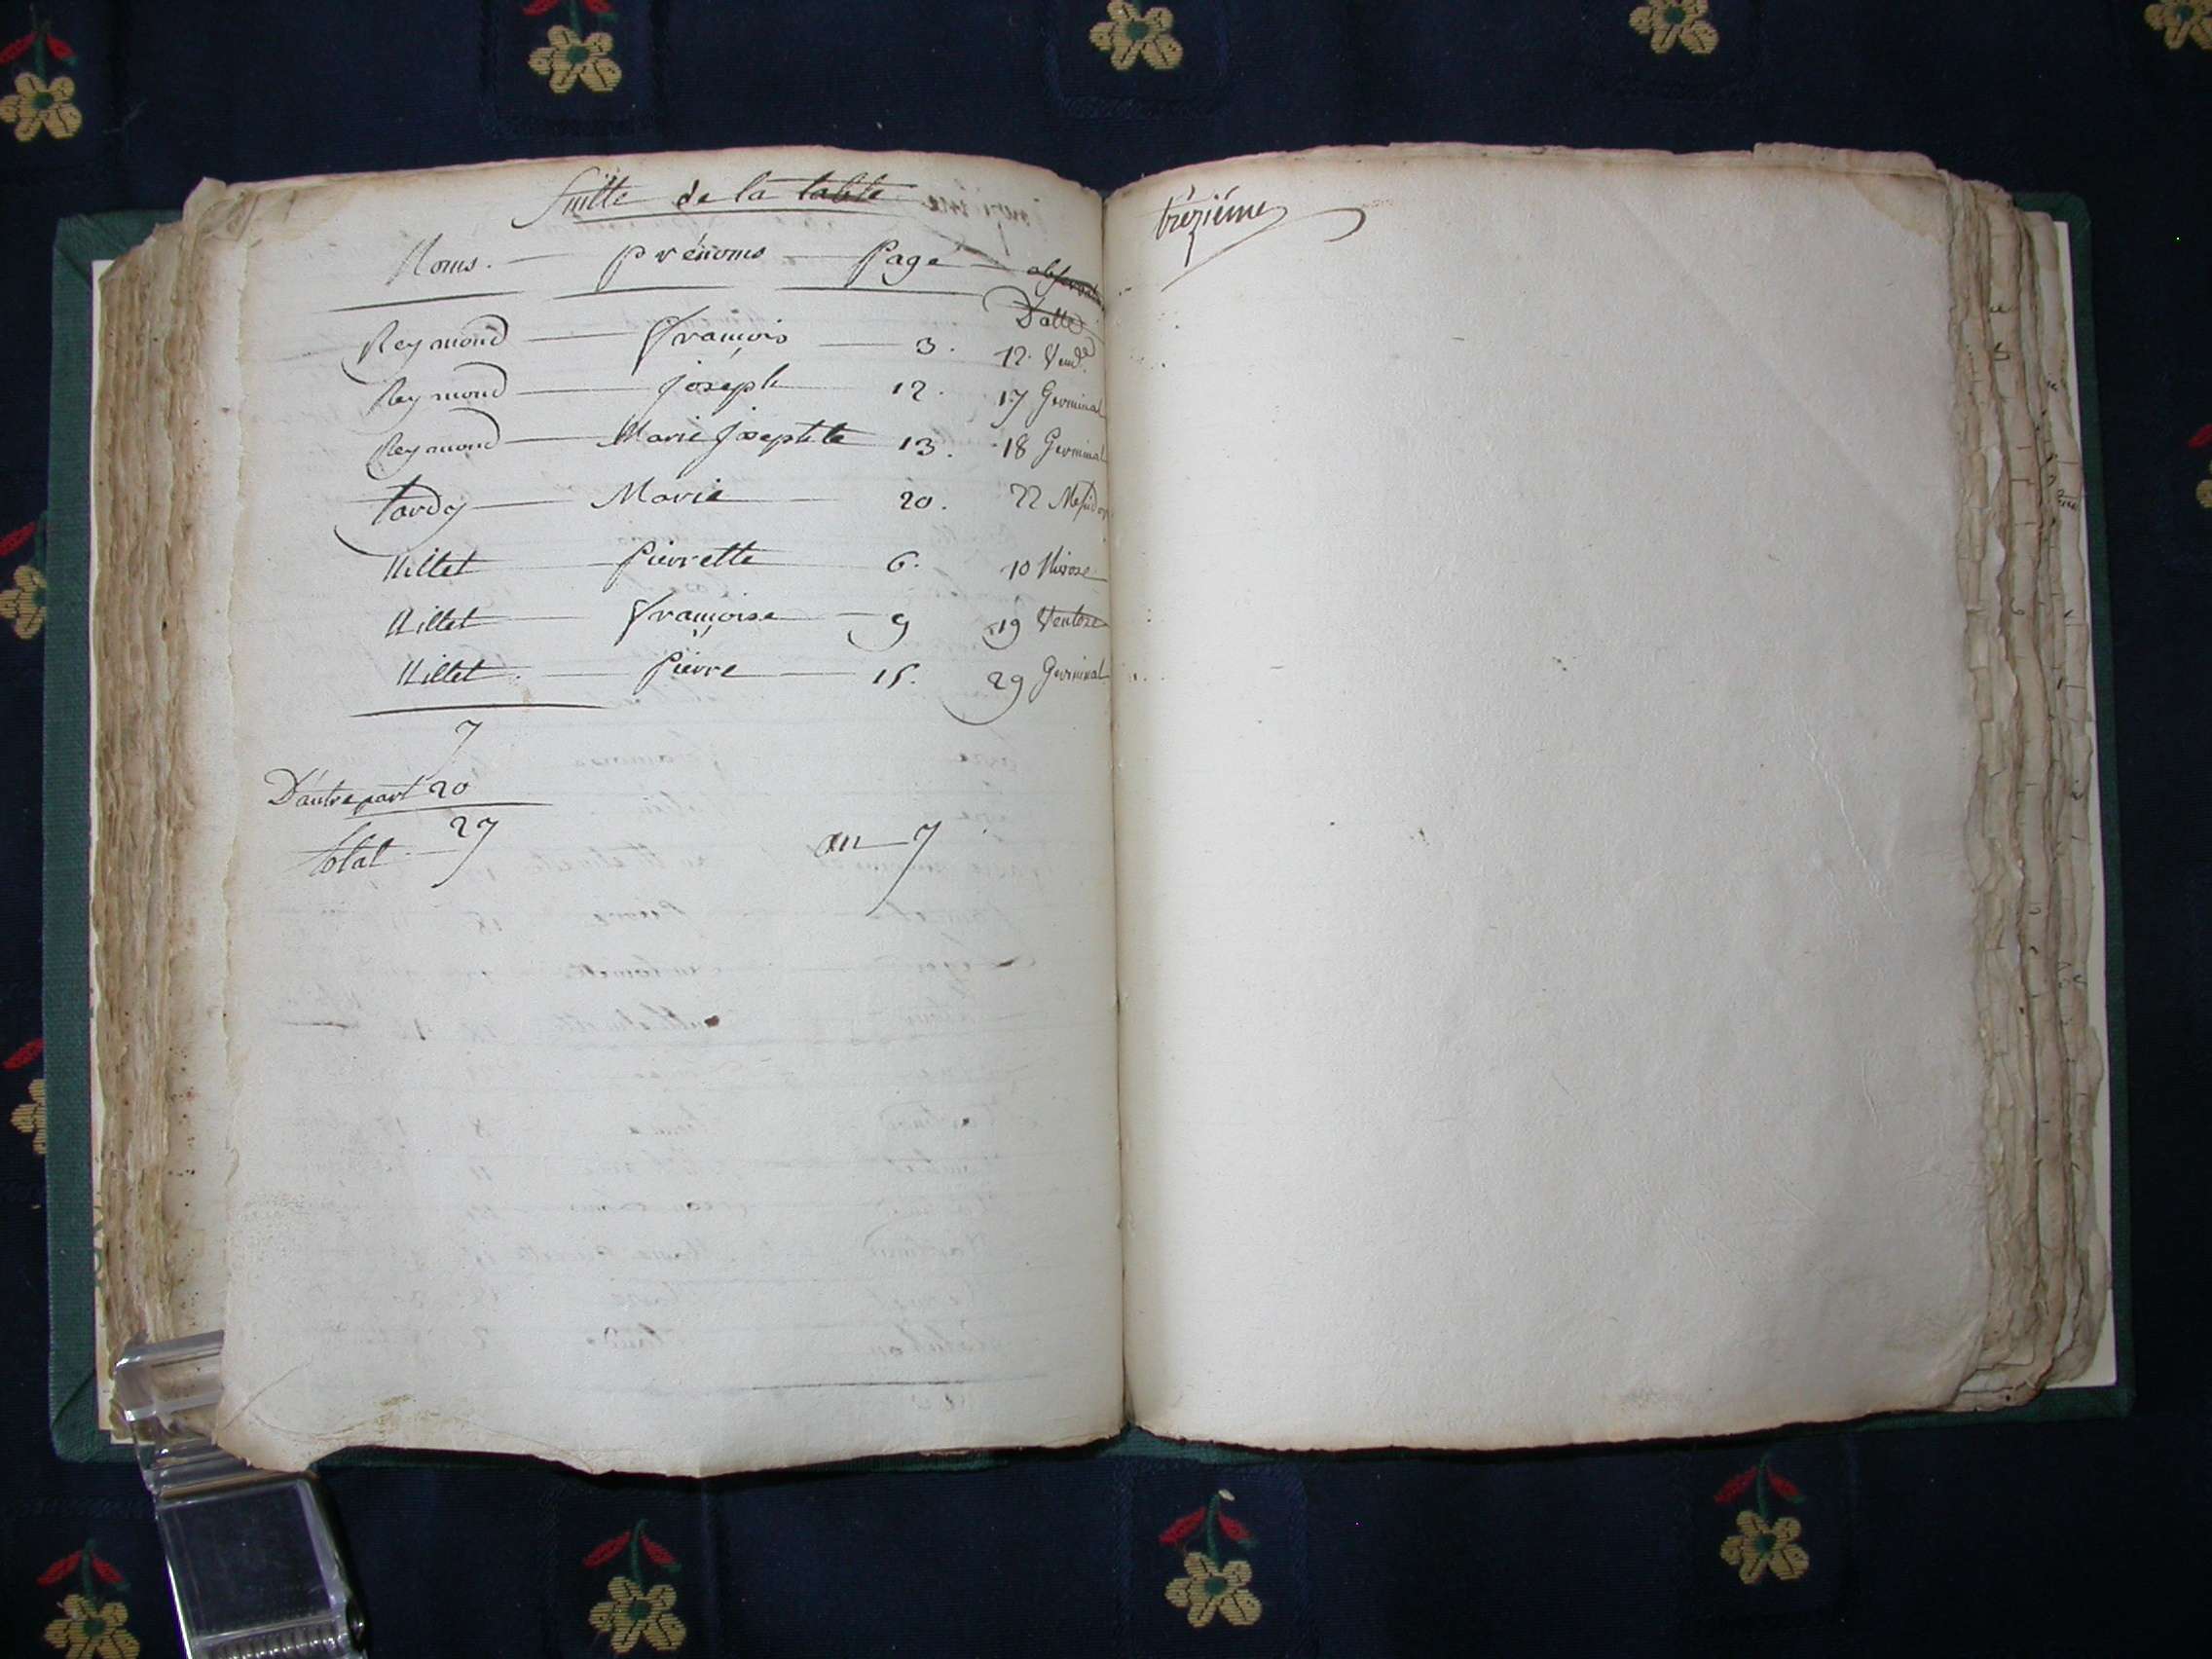 Suitte de la table
Noms. — prénoms — Page — observations
Datte
Reymond — François — 3. 12. Vend.re
Reymond — joseph — 12. 17 Germinal
Reymond — Marie josephte 13. 18 Germinal
tardy — Marie — 20. 22 Messidor
Millet — Pierrette 6. 10 Nivose
Millet — Françoise — 9 19 Ventose
Millet. — Pierre — 15. 29 Germinal
7
D'autre part 20
total — 27
an 7
trézième